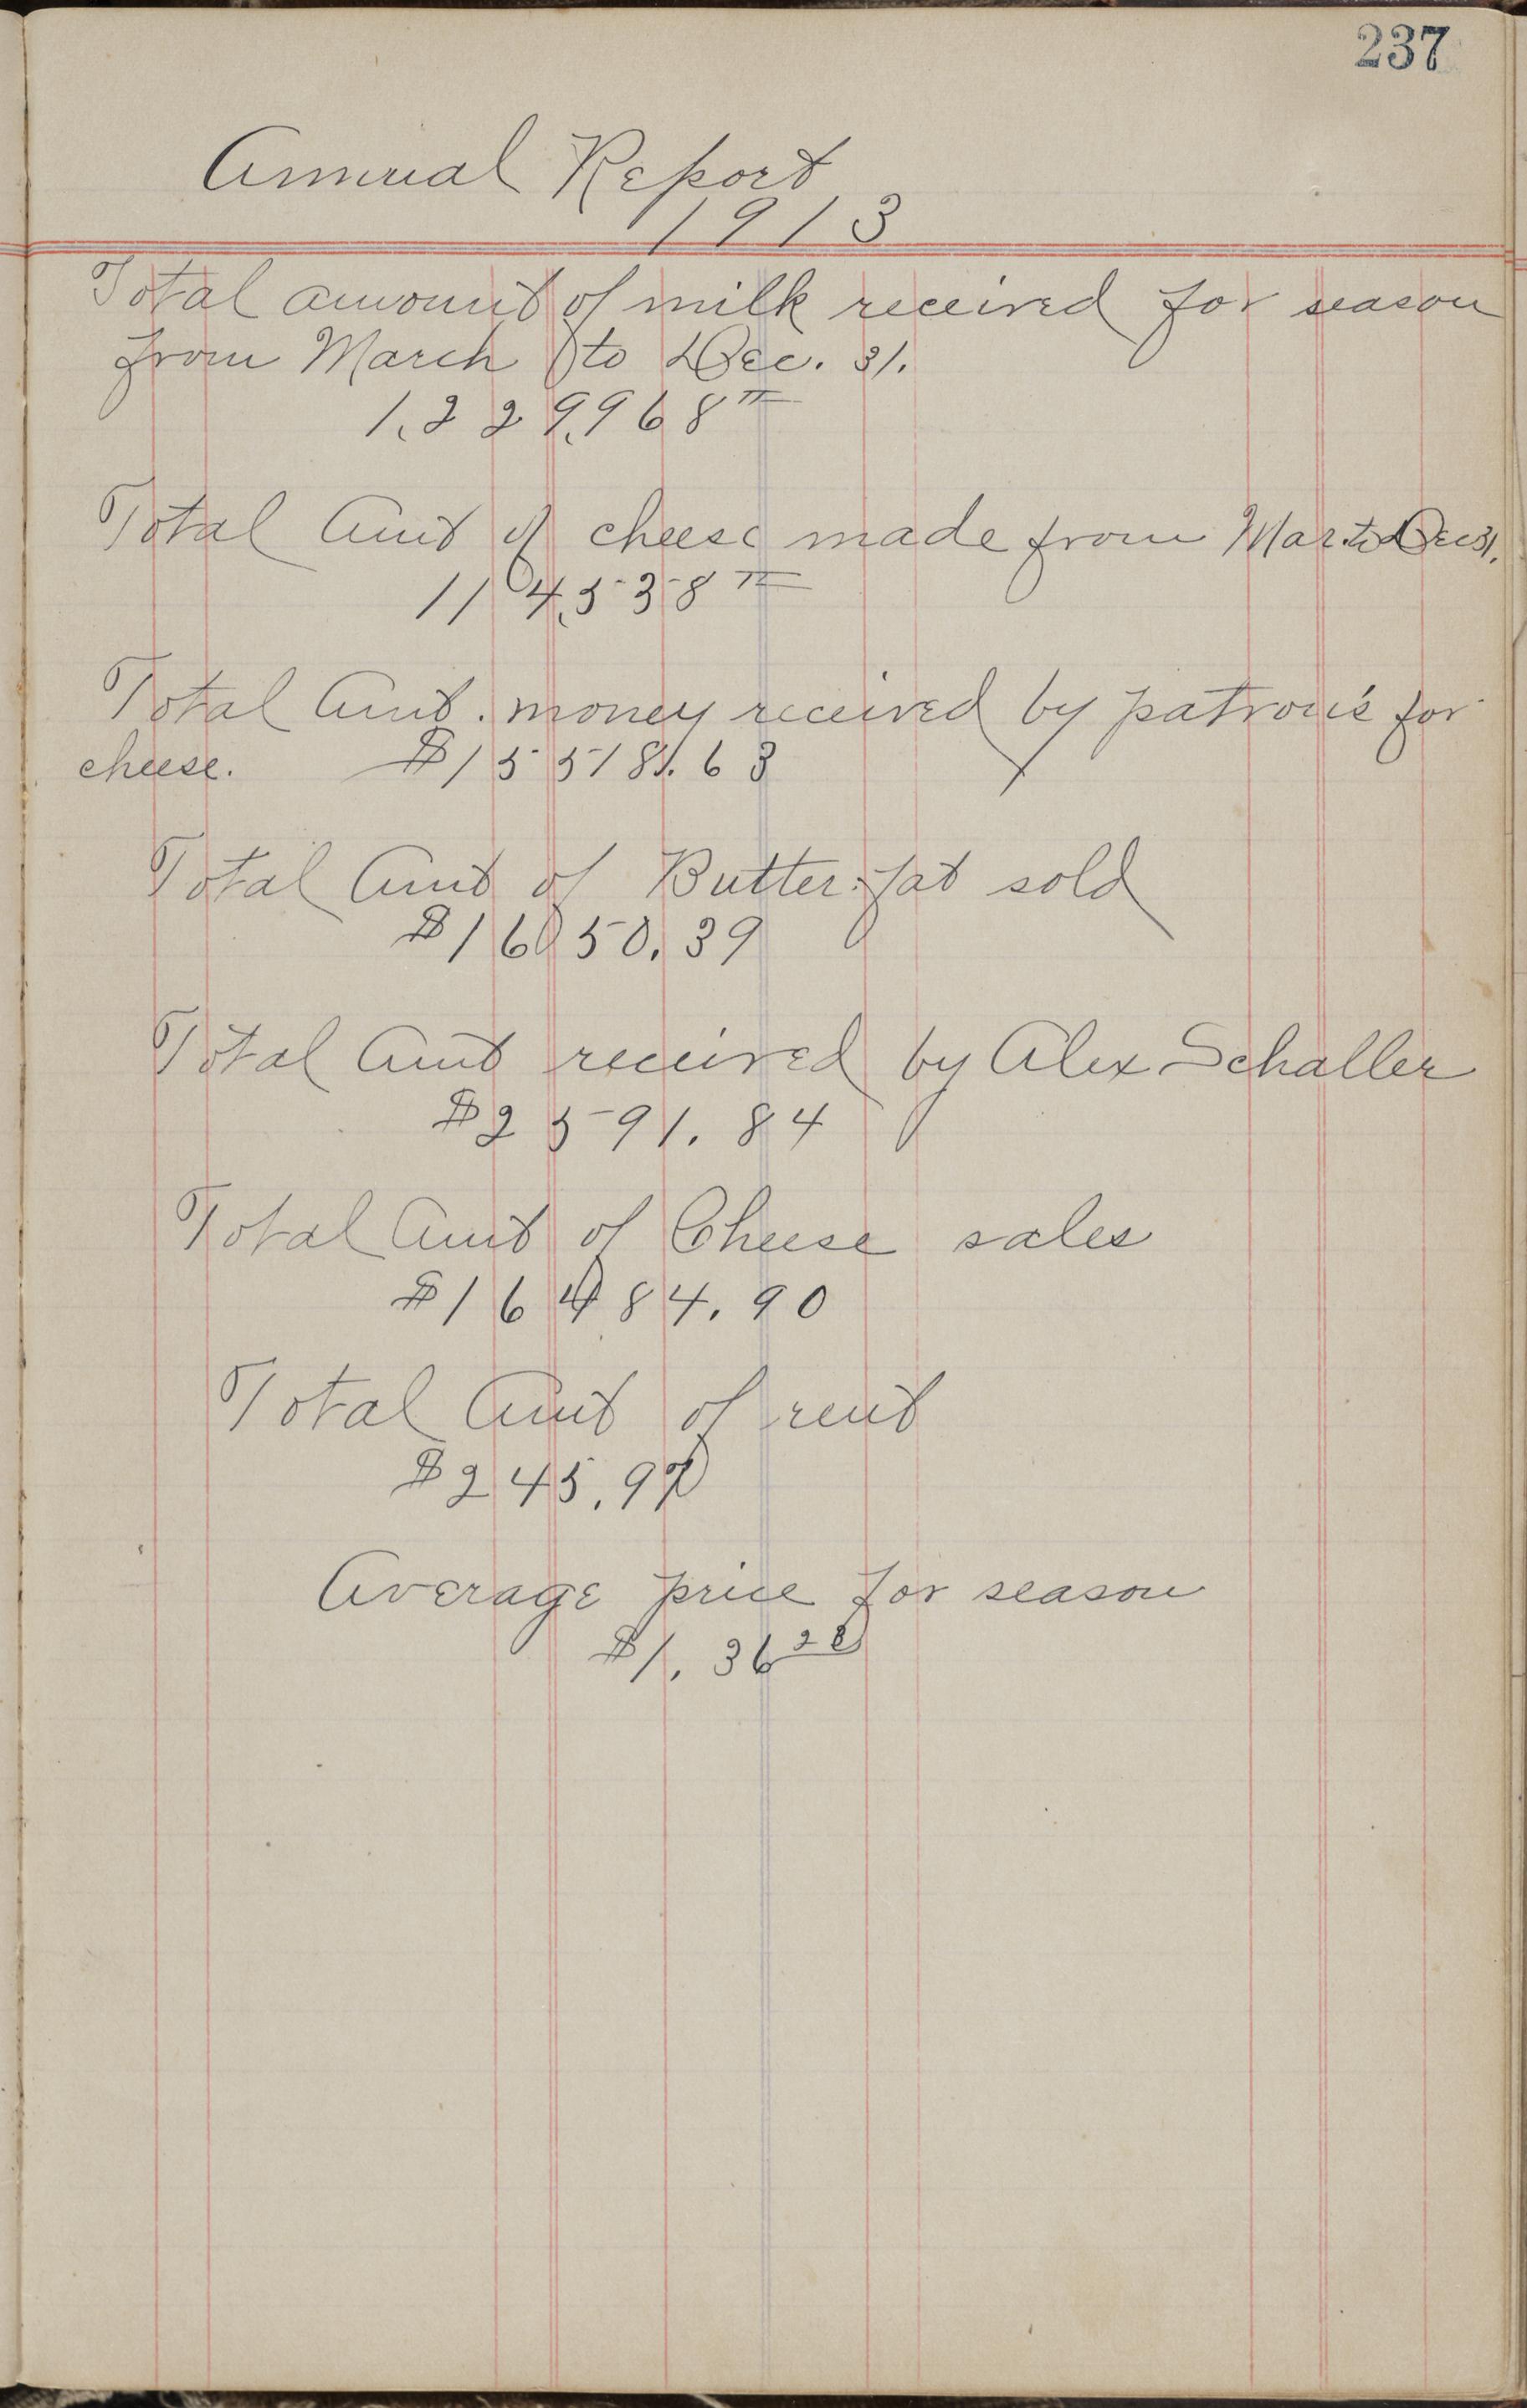 237
Annual Report
1913
Total amount of milk received for season
from March to Dec. 31.
1,229,968 #
Total Amt of cheese made from Mar. to Dec 31.
114,538 #
Total Amt. money received by patron's for
cheese. $15518.63
Total Amt of Butter-fat sold
$1650.39
Total Amt received by Alex Schaller
$2591.84
Total Amt of Cheese sales
$16484.90
Total Amt of rent
$245.97
Average price for season
$1.36 28